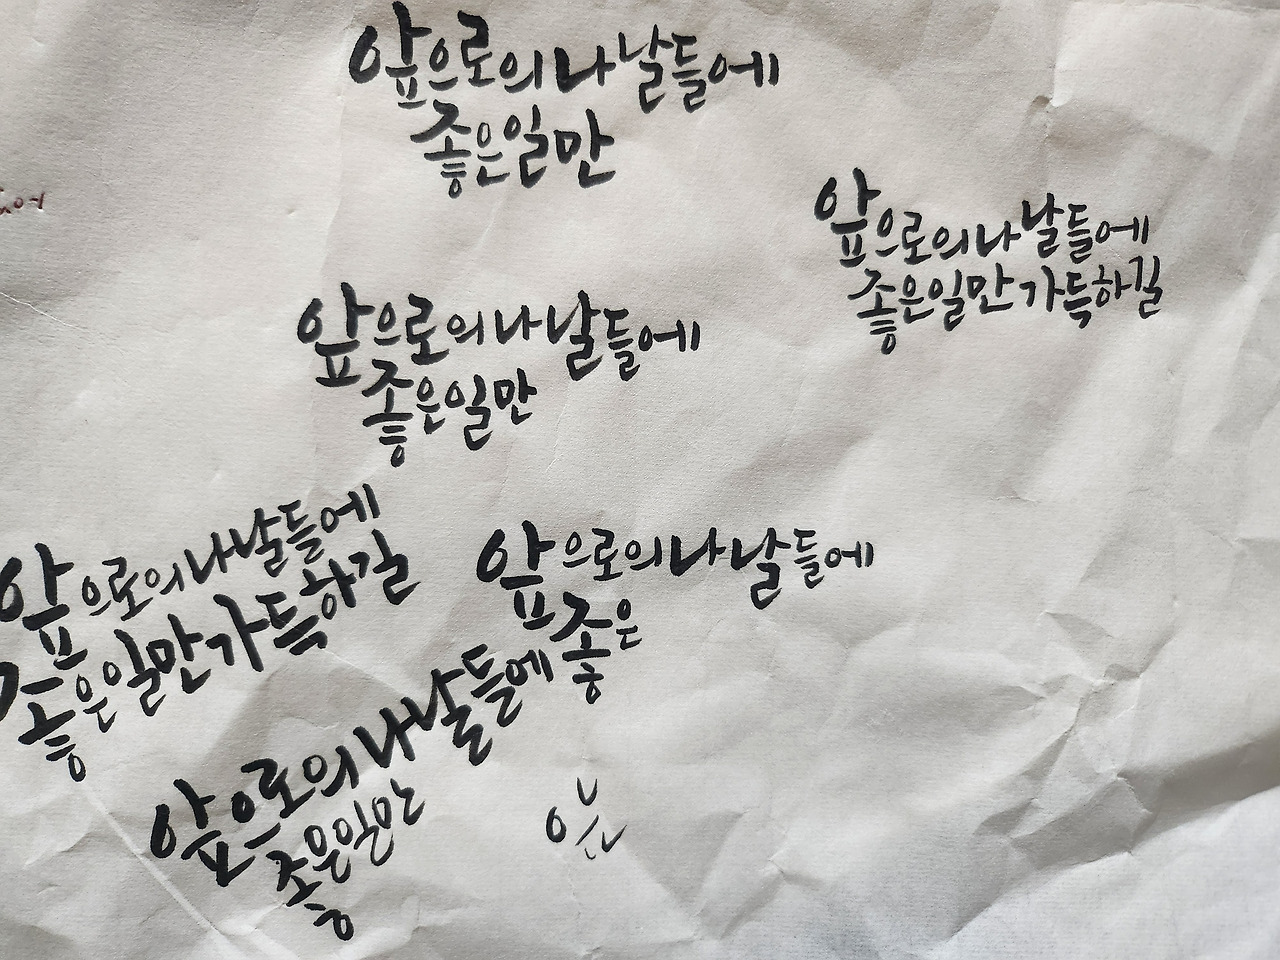 앞으로의 나날들에
좋은 일만
앞으로의 나날들에
좋은 일만 가득하길
앞으로의 나날들에
좋은 일만
앞으로의 나날들에
좋은 일만 가득하길
앞으로의 나날들에
좋은
앞으로의 나날들에
좋은 일만